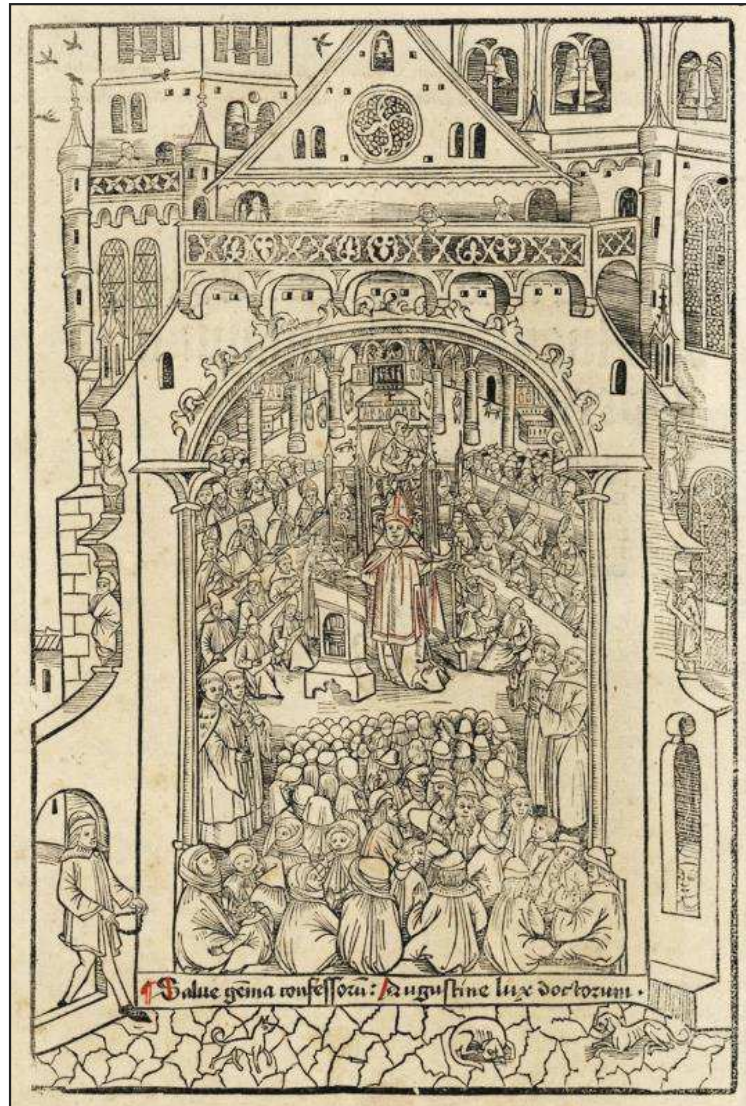 ¶ Salue gēma confessorū: Augustine lux doctorum.